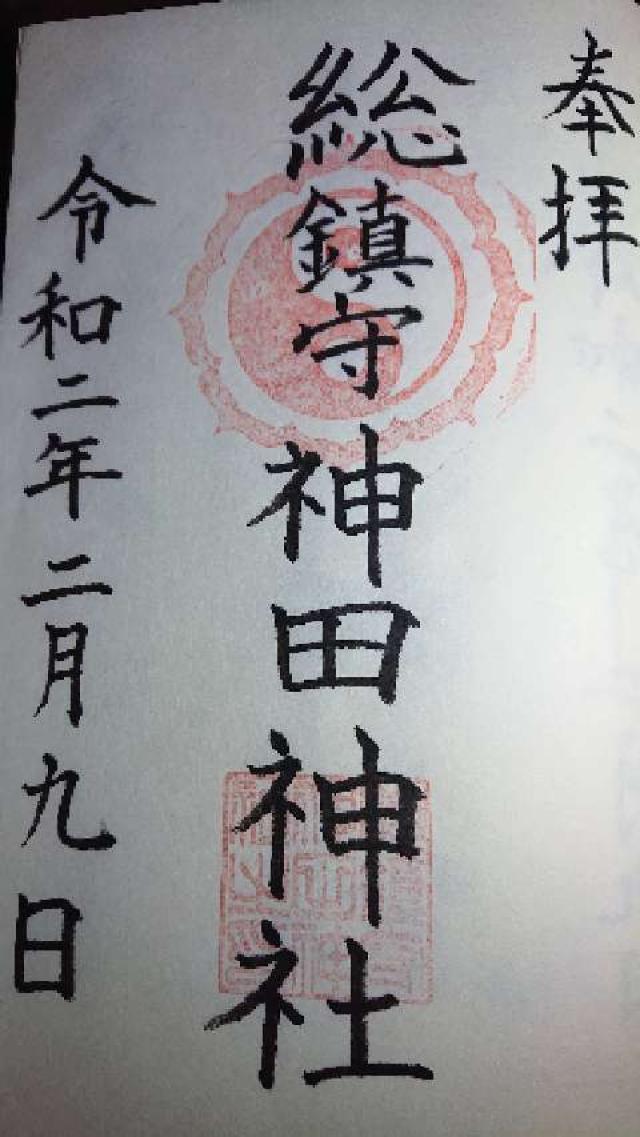 奉拝
総鎮守神田神社
令和二年二月九日